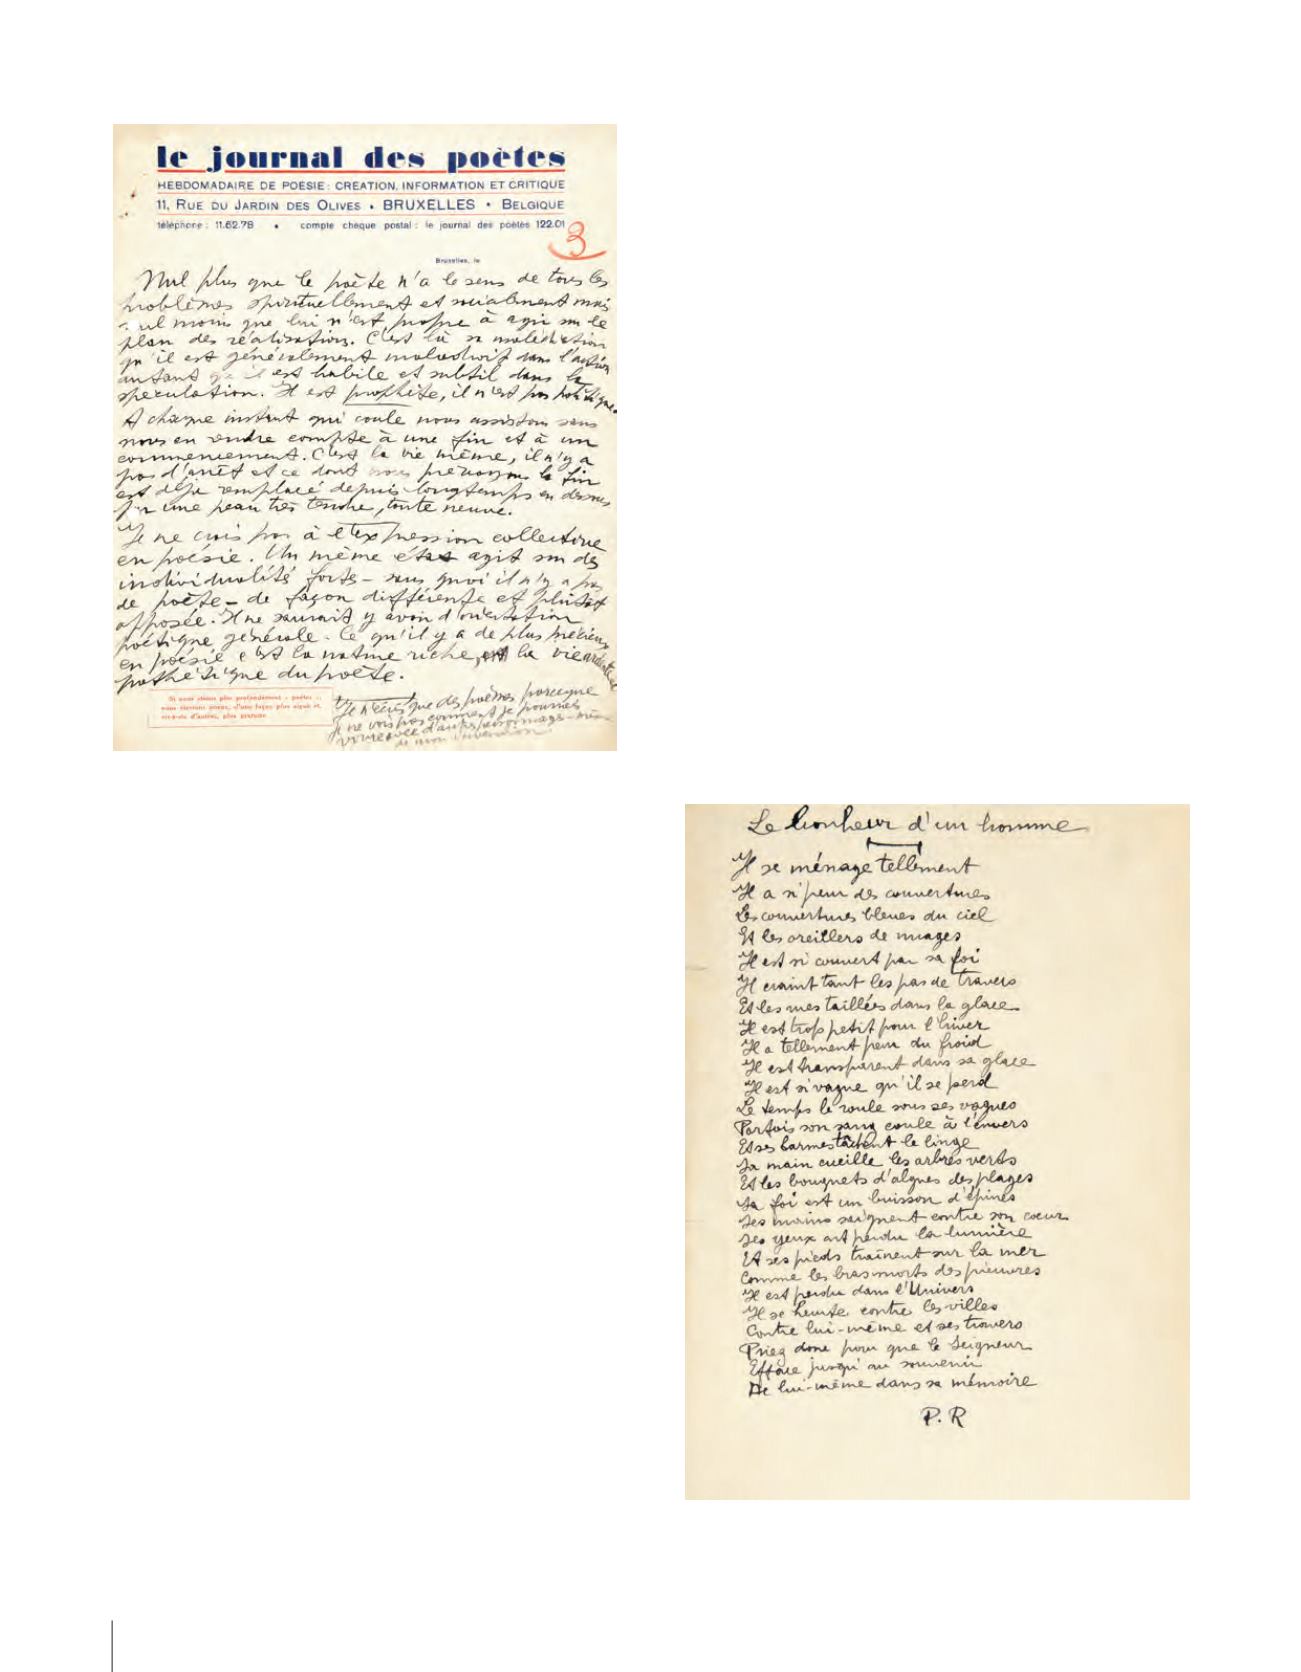 le journal des poètes
HEBDOMADAIRE DE POESIE : CREATION, INFORMATION ET CRITIQUE
11, RUE DU JARDIN DES OLIVES • BRUXELLES • BELGIQUE
téléphone : 11.62.78 • compte chèque postal : le journal des poètes 122.01
3
Bruxelles, le
Nul plus que le poète n'a le sens de tous les
problèmes spirituellement et socialement mais
nul moins que lui n'est propre à agir sur le
plan des réalisations. C'est là sa malédiction
qu'il est généralement maladroit dans l'action
autant qu'il est habile et subtil dans la
spéculation. Il est prophète, il n'est pas politique.
A chaque instant qui coule nous assistons sans
nous en rendre compte à une fin et à un
commencement. C'est la vie même, il n'y a
pas d'arrêt et ce dont nous prévoyons la fin
est déjà remplacé depuis longtemps en dessous
par une peau très tendre, toute neuve.
Je ne crois pas à l'expression collective
en poésie. Un même état agit sur des
individualités fortes - sans quoi il n'y a pas
de poète - de façon différente et plutôt
opposée. Il ne saurait y avoir d'orientation
poétique générale. Ce qu'il y a de plus précieux
en poésie c'est la nature riche, la vie ardente et
pathétique du poète.
Si nous étions plus profondément « poètes »,
nous vivrions mieux, d'une façon plus aiguë et,
vis-à-vis d'autrui, plus gratuite
Je n'écris que des poèmes parce que
je ne vois pas comment je pourrais
vivre avec d'autres personnages - même
de mon invention
Le bonheur d'un homme
Il se ménage tellement
Il a si peur des couvertures
Les couvertures bleues du ciel
Et les oreillers de nuages
Il est si couvert par sa foi
Il craint tant les pas de travers
Et les rues taillées dans la glace
Il est trop petit pour l'hiver
Il a tellement peur du froid
Il est transparent dans sa glace
Il est si vague qu'il se perd
Le temps le roule sous ses vagues
Parfois son sang coule à l'envers
Et ses larmes tachent le linge
Sa main cueille les arbres verts
Et les bouquets d'algues des plages
Sa foi est un buisson d'épines
Ses mains saignent contre son cœur
Ses yeux ont perdu la lumière
Et ses pieds traînent sur la mer
Comme les bras morts des pieuvres
Il est perdu dans l'Univers
Il se heurte contre les villes
Contre lui-même et ses travers
Priez donc pour que le Seigneur
Efface jusqu'au souvenir
De lui-même dans sa mémoire
P. R